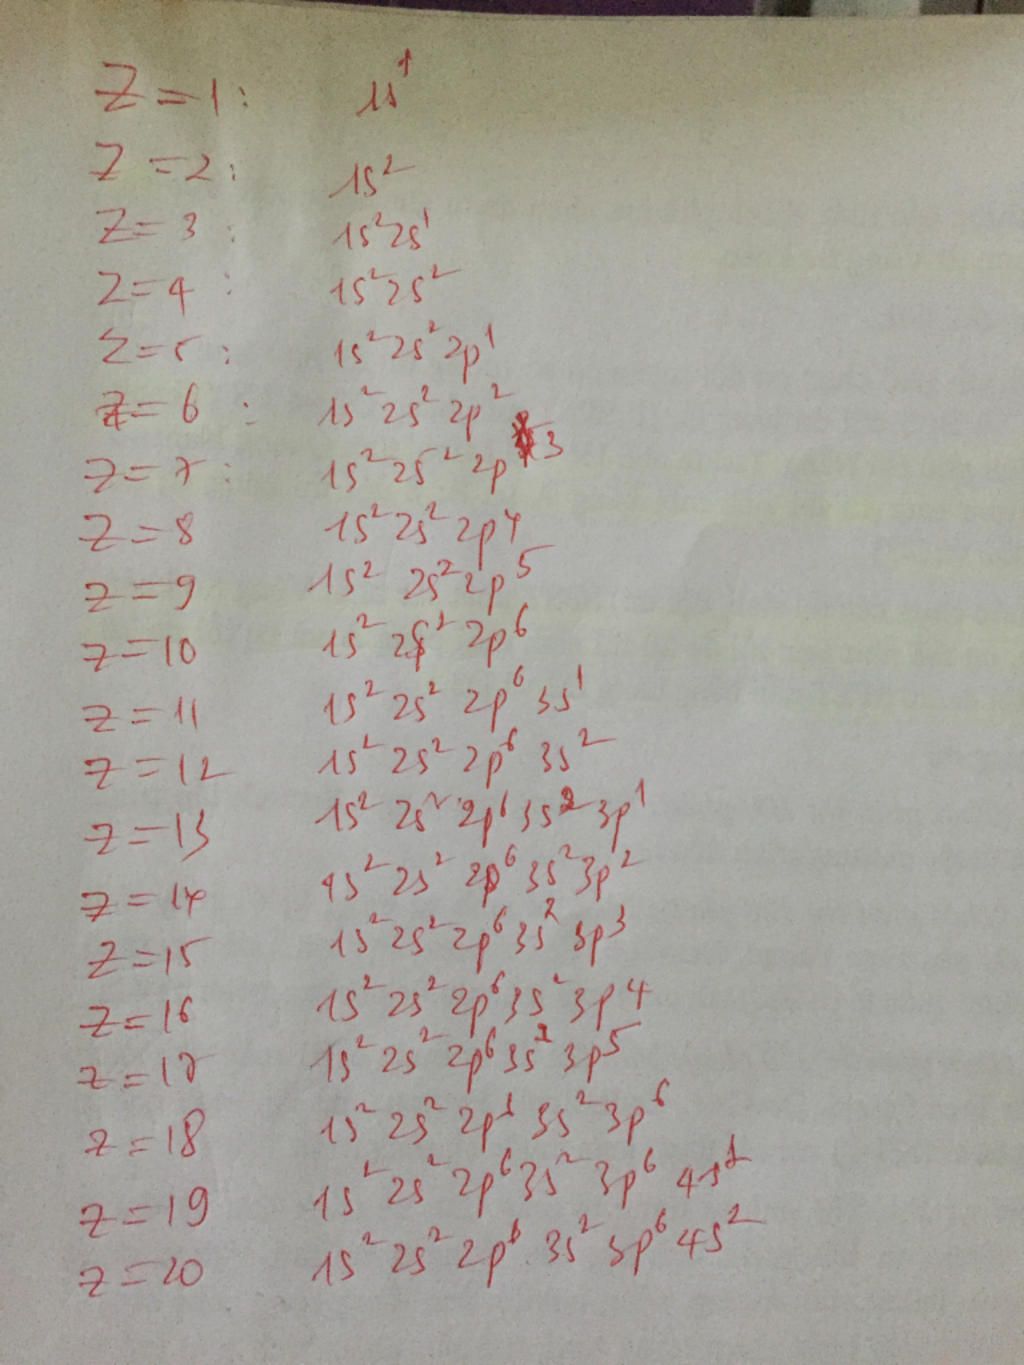 Z = 1 : 1s¹
Z = 2 : 1s²
Z = 3 : 1s² 2s¹
Z = 4 : 1s² 2s²
Z = 5 : 1s² 2s² 2p¹
Z = 6 : 1s² 2s² 2p²
Z = 7 : 1s² 2s² 2p³
Z = 8 1s² 2s² 2p⁴
Z = 9 1s² 2s² 2p⁵
Z = 10 1s² 2s² 2p⁶
Z = 11 1s² 2s² 2p⁶ 3s¹
Z = 12 1s² 2s² 2p⁶ 3s²
Z = 13 1s² 2s² 2p⁶ 3s² 3p¹
Z = 14 1s² 2s² 2p⁶ 3s² 3p²
Z = 15 1s² 2s² 2p⁶ 3s² 3p³
Z = 16 1s² 2s² 2p⁶ 3s² 3p⁴
Z = 17 1s² 2s² 2p⁶ 3s² 3p⁵
Z = 18 1s² 2s² 2p⁶ 3s² 3p⁶
Z = 19 1s² 2s² 2p⁶ 3s² 3p⁶ 4s¹
Z = 20 1s² 2s² 2p⁶ 3s² 3p⁶ 4s²